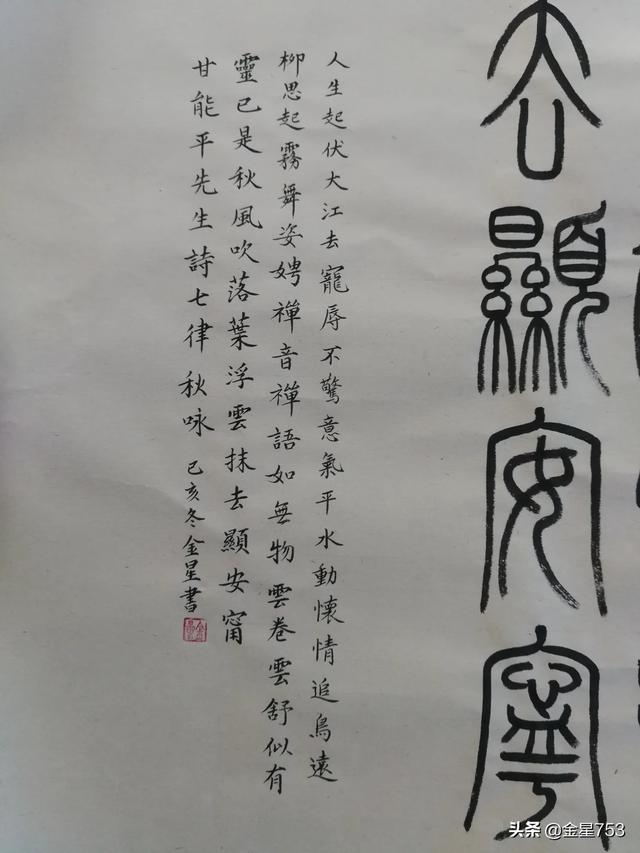 去顯安寧
人生起伏大江去寵辱不驚意氣平水動懷情追鳥遠
柳思起霧舞姿娉禪音禪語如無物雲卷雲舒似有
靈已是秋風吹落葉浮雲抹去顯安甯
甘能平先生詩七律秋咏 己亥冬金星書
头条 @金星753